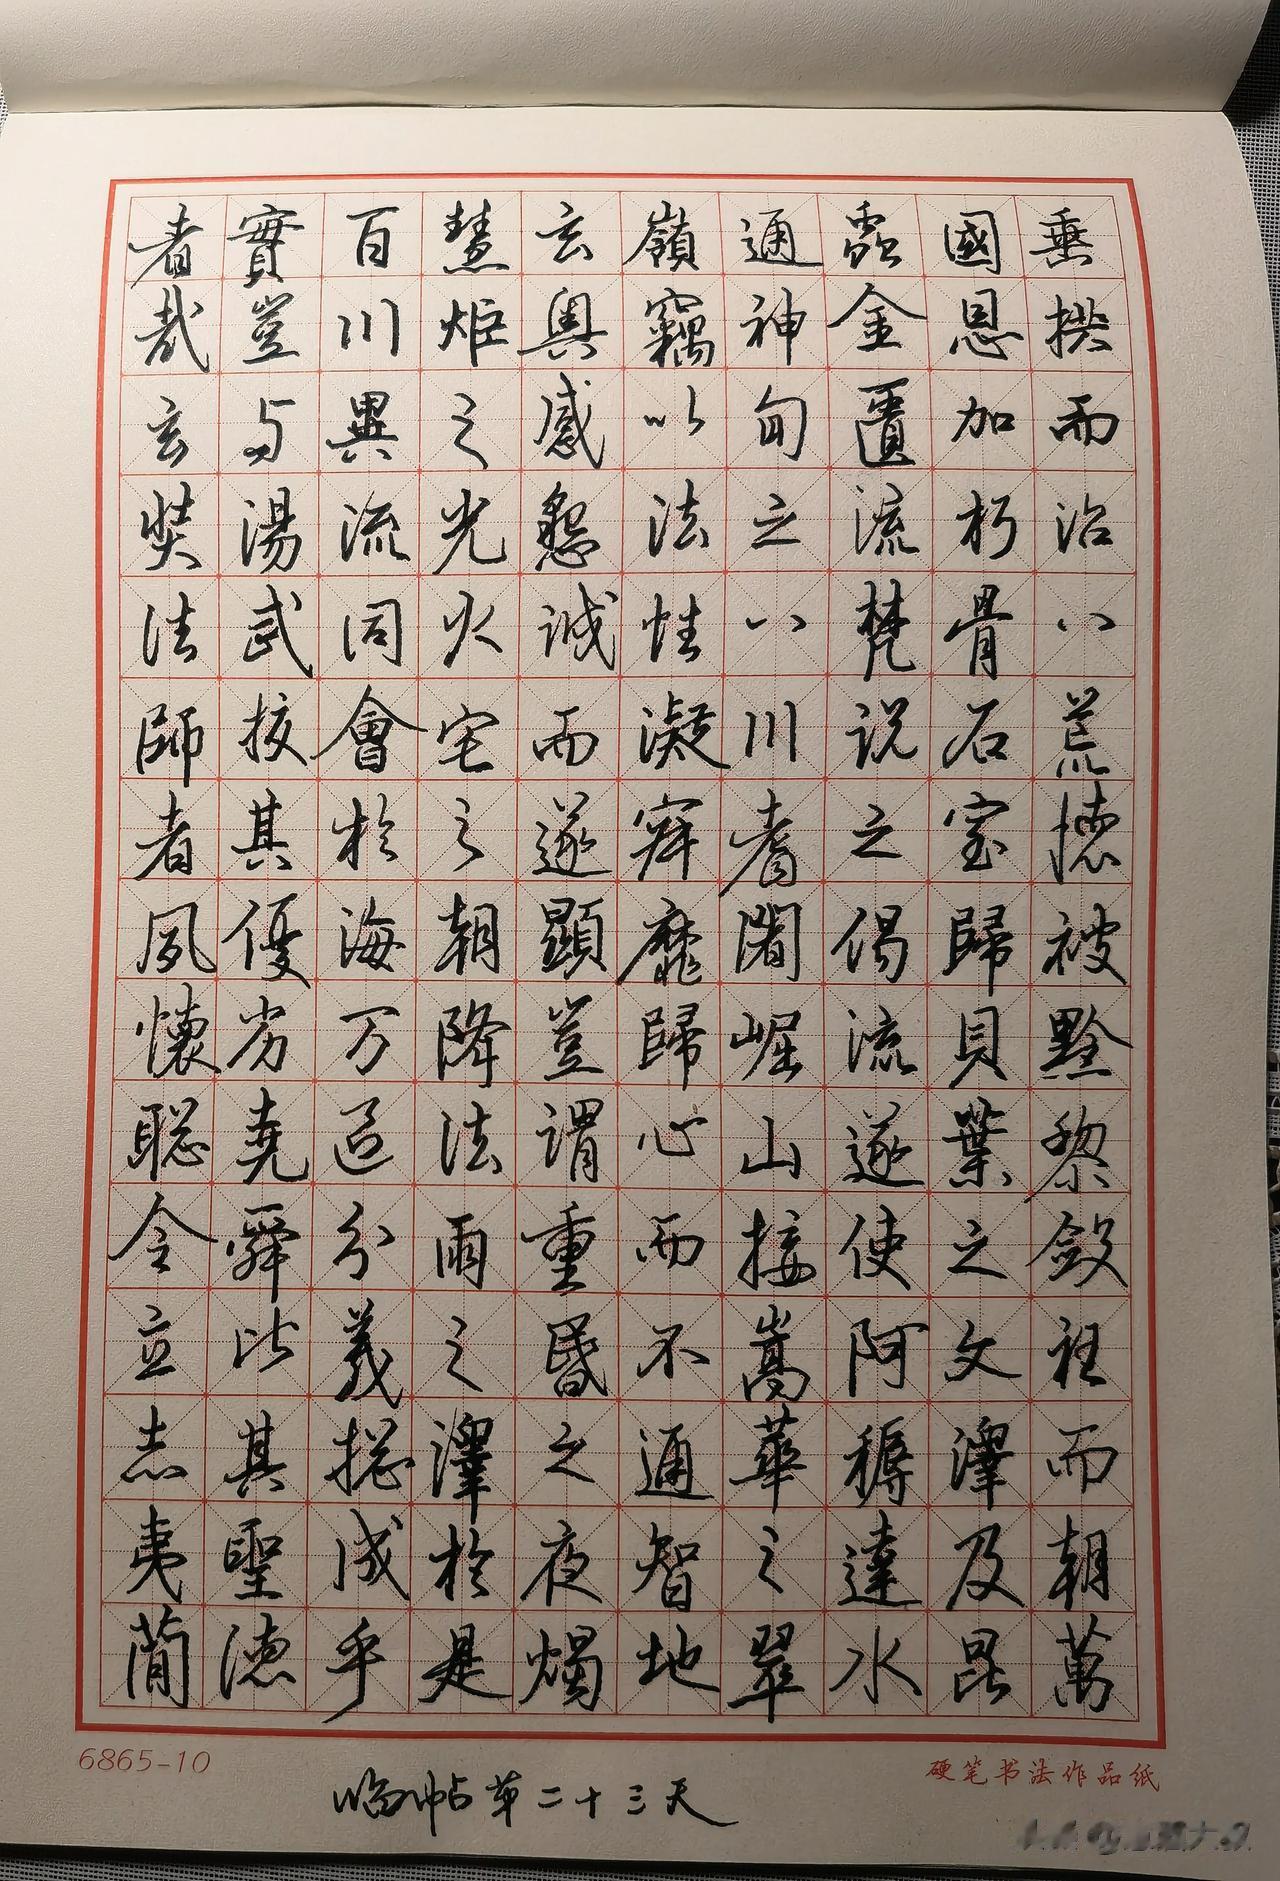 垂拱而治八荒德被黔黎斂衽而朝萬
國恩加朽骨石室歸貝葉之文澤及昆
蟲金匱流梵説之偈流遂使阿耨達水
通神甸之八川耆闍崛山接嵩華之翠
嶺竊以法性凝寂靡歸心而不通智地
玄奧感懇誠而遂顯豈謂重昏之夜燭
慧炬之光火宅之朝降法雨之澤於是
百川異流同會於海万區分義揔成乎
實豈与湯武挍其優劣堯舜比其聖德
者哉玄奘法師者夙懷聡令立志夷簡
6865-10
硬笔书法作品纸
临帖第二十三天